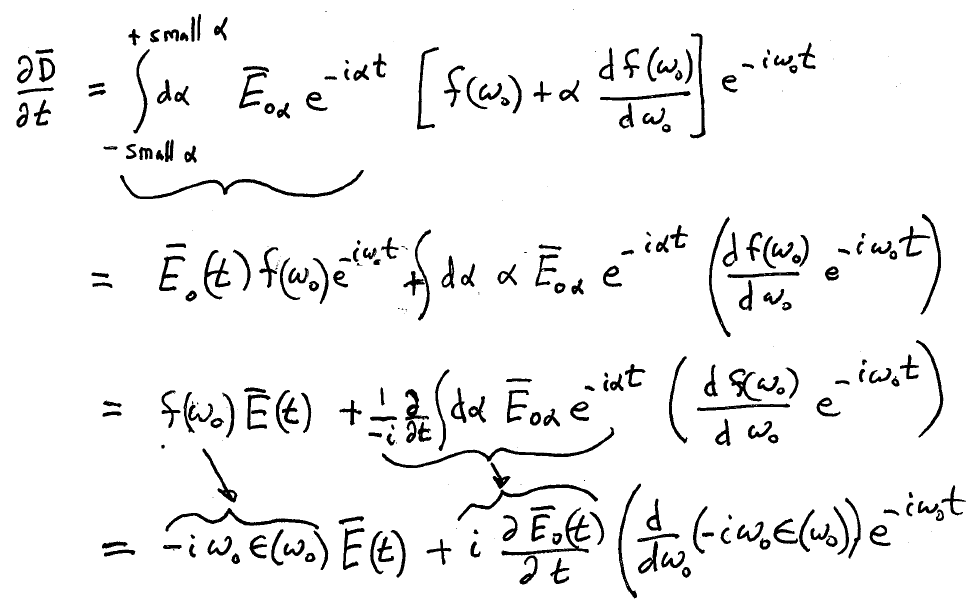 ∂D̄/∂t = ∫_{- small α}^{+ small α} dα Ē_{oα} e^{-iαt} [f(ω₀) + α df(ω₀)/dω₀] e^{-iω₀t}
= Ē₀(t) f(ω₀) e^{-iω₀t} + ∫ dα α Ē_{oα} e^{-iαt} (df(ω₀)/dω₀ e^{-iω₀t})
= f(ω₀) Ē(t) + 1/-i ∂/∂t ∫ dα Ē_{oα} e^{-iαt} (df(ω₀)/dω₀ e^{-iω₀t})
= -iω₀ϵ(ω₀) Ē(t) + i ∂Ē₀(t)/∂t (d/dω₀ (-iω₀ϵ(ω₀)) e^{-iω₀t}